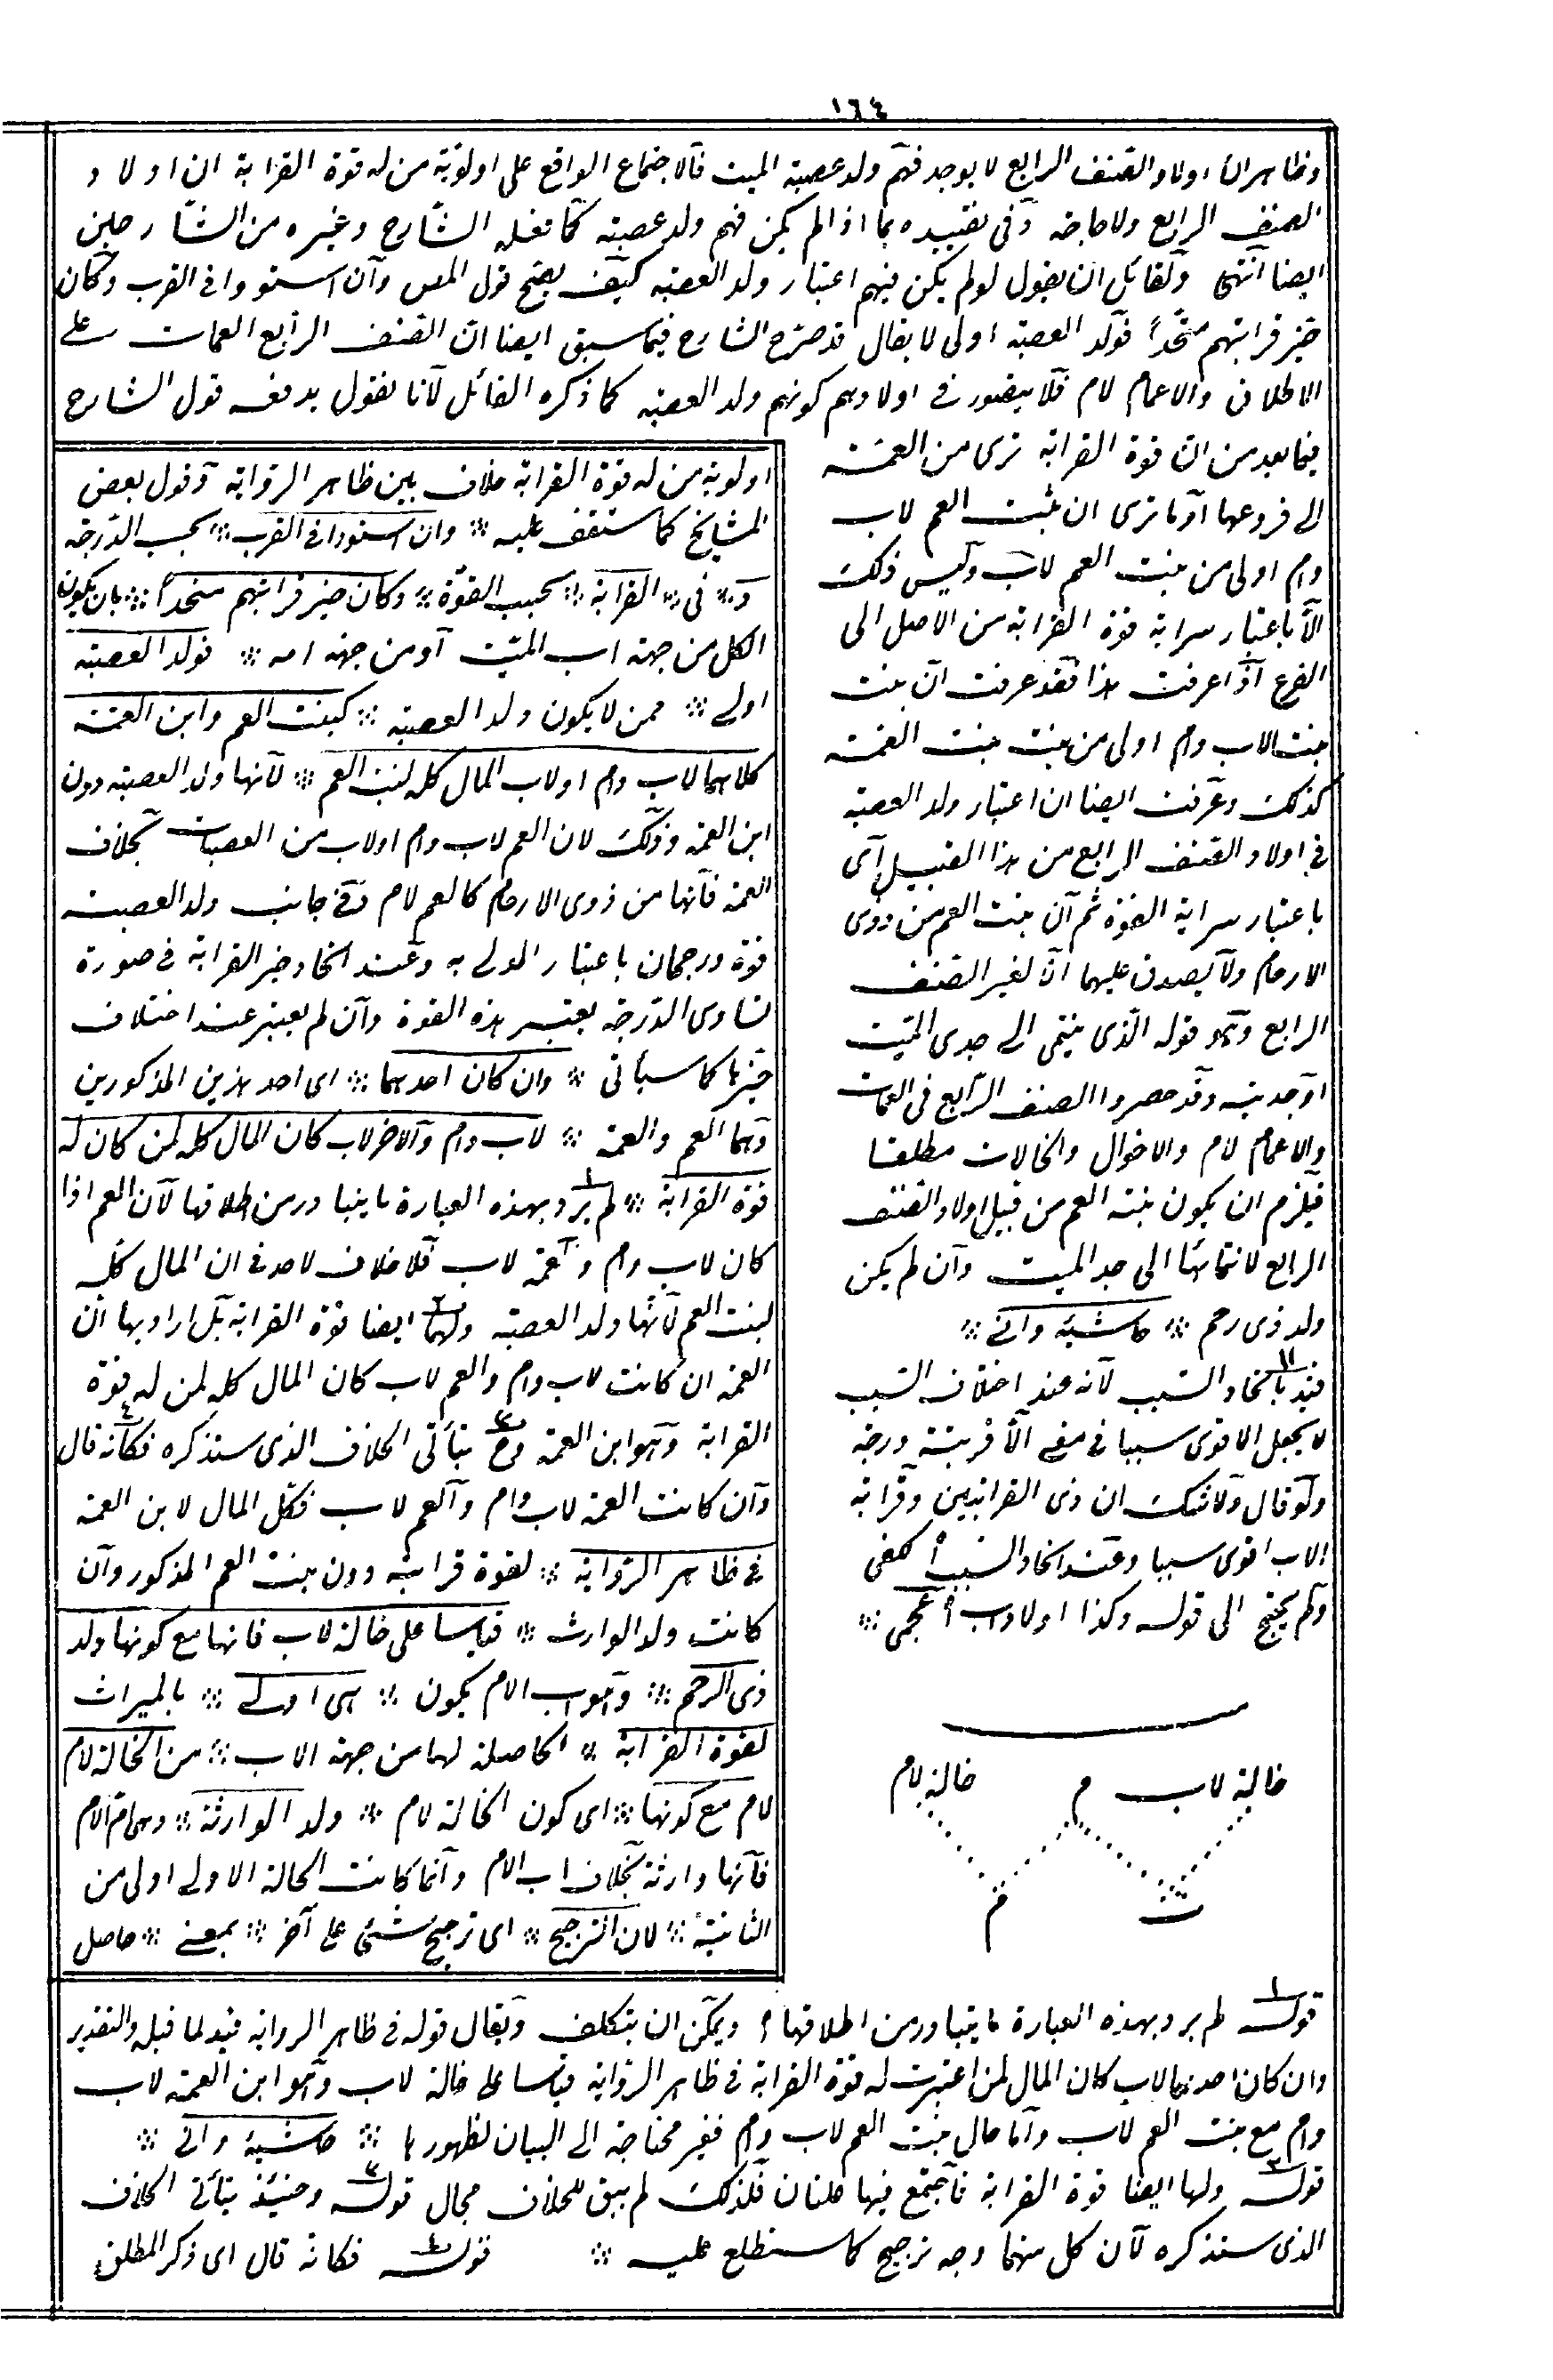 ١٦٤
وظاهر ان اولاد الصنف الرابع لا يوجد فيهم ولد عصبة الميت فالاجماع الواقع على اولوية من له قوة القرابة ان اولاد
الصنف الرابع ولا حاجة وفى تقييده بما اذا لم يكن فيهم ولد عصبة كما فعله الشارح وغيره من الشارحين
ايضا انتهى ولقائل ان يقول لو لم يكن فيهم اعتبار ولد العصبة كيف يصح قول المص وان استووا فى القرب وكان
حيز قرابتهم متحدا فولد العصبة اولى لا يقال قد صرح الشارح فيما سبق ايضا ان الصنف الرابع العمات على
الاطلاق والاعمام لام فلا يتصور فى اولادهم كونهم ولد العصبة كما ذكره القائل لانا نقول يدفعه قول الشارح
فيما بعد من ان قوة القرابة ترى من العمة
الى فروعها او ما ترى ان بنت العم لاب
وام اولى من بنت العم لاب وليس ذلك
الا باعتبار سراية قوة القرابة من الاصل الى
الفرع اذا عرفت هذا فقد عرفت ان بنت
بنت الاب وام اولى من بنت بنت العمة
كذلك وعرفت ايضا ان اعتبار ولد العصبة
فى اولاد الصنف الرابع من هذا القبيل اى
باعتبار سراية القوة ثم ان بنت العم من ذوى
الارحام ولا يصدق عليها الا لغير الصنف
الرابع وهو قوله الذى ينتمى الى جدى الميت
او جدتيه وقد حصروا الصنف الرابع فى العمات
والاعمام لام والاخوال والخالات مطلقا
فيلزم ان يكون بنت العم من قبيل اولاد الصنف
الرابع لانتمائها الى جد الميت وان لم يكن
ولد ذى رحم حاشية وانى
قيد باتحاد السبب لانه عند اختلاف السبب
لا يجعل الاقوى سببا فى معنى الاقربية درجة
ولو قال ولا شك ان ذى القرابتين وقرابة
الاب اقوى سببا وعند اتحاد السبب ا لكفى
ولم يحتج الى قوله وكذا اولاد اب ا عجمى
خالة لاب م خالة لام
ت م
اولوية من له قوة القرابة خلاف بين ظاهر الرواية وقول بعض
المشايخ كما ستقف عليه وان استووا فى القرب بحسب الدرجة
و فى القرابة بحسب القوة وكان حيز قرابتهم متحدا بان يكون
الكل من جهة اب الميت او من جهة امه فولد العصبة
اولى ممن لا يكون ولد العصبة كبنت العم وابن العمة
كلاهما لاب وام او لاب المال كله لبنت العم لانها ولد العصبة دون
ابن العمة وذلك لان العم لاب وام او لاب من العصبات بخلاف
العمة فانها من ذوى الارحام كالعم لام وفى جانب ولد العصبة
قوة ورجحان باعتبار المدلى به وعند اتحاد حيز القرابة فى صورة
تساوى الدرجة يعتبر هذه القوة وان لم يعتبر عند اختلاف
حيزها كما سيأتى وان كان احدهما اى احد هذين المذكورين
وهما العم والعمة لاب وام والاخر لاب كان المال كله لمن كان له
قوة القرابة لم يرد بهذه العبارة ما يتبادر من اطلاقها لان العم اذا
كان لاب وام والعمة لاب فلا خلاف لاحد فى ان المال كله
لبنت العم لانها ولد العصبة ولها ايضا قوة القرابة بل اراد بها ان
العمة ان كانت لاب وام والعم لاب كان المال كله لمن له قوة
القرابة وهو ابن العمة وح يتأتى الخلاف الذى سنذكره فكأنه قال
وان كانت العمة لاب وام والعم لاب فكل المال لابن العمة
فى ظاهر الرواية لقوة قرابته دون بنت العم المذكور وان
كانت ولد الوارث قياسا على خالة لاب فانها مع كونها ولد
ذى الرحم وهو اب الام يكون هى اولى بالميراث
لقوة القرابة الحاصلة لها من جهة الاب من الخالة لام
لام مع كونها اى كون الخالة لام ولد الوارثة وهى ام الام
فانها وارثة بخلاف اب الام وانما كانت الخالة الاولى اولى من
الثانية لان الترجيح اى ترجيح شئ على آخر بمعنى حاصل
قوله لم يرد بهذه العبارة ما يتبادر من اطلاقها ا ويمكن ان يتكلف ويقال قوله فى ظاهر الرواية قيد لما قبله والتقدير
وان كان احدهما لاب كان المال لمن اعتبرت له قوة القرابة فى ظاهر الرواية قياسا على خالة لاب وهو ابن العمة لاب
وام مع بنت العم لاب واما حال بنت العم لاب وام فغير محتاجة الى البيان لظهورها حاشية وانى
قوله ولها ايضا قوة القرابة فاجتمع فيها علتان فلذلك لم يبق للخلاف مجال قوله وحينئذ يتأتى الخلاف
الذى سنذكره لان كل منهما وجه ترجيح كما ستطلع عليه قوله فكانه قال اى ذكر المطلق